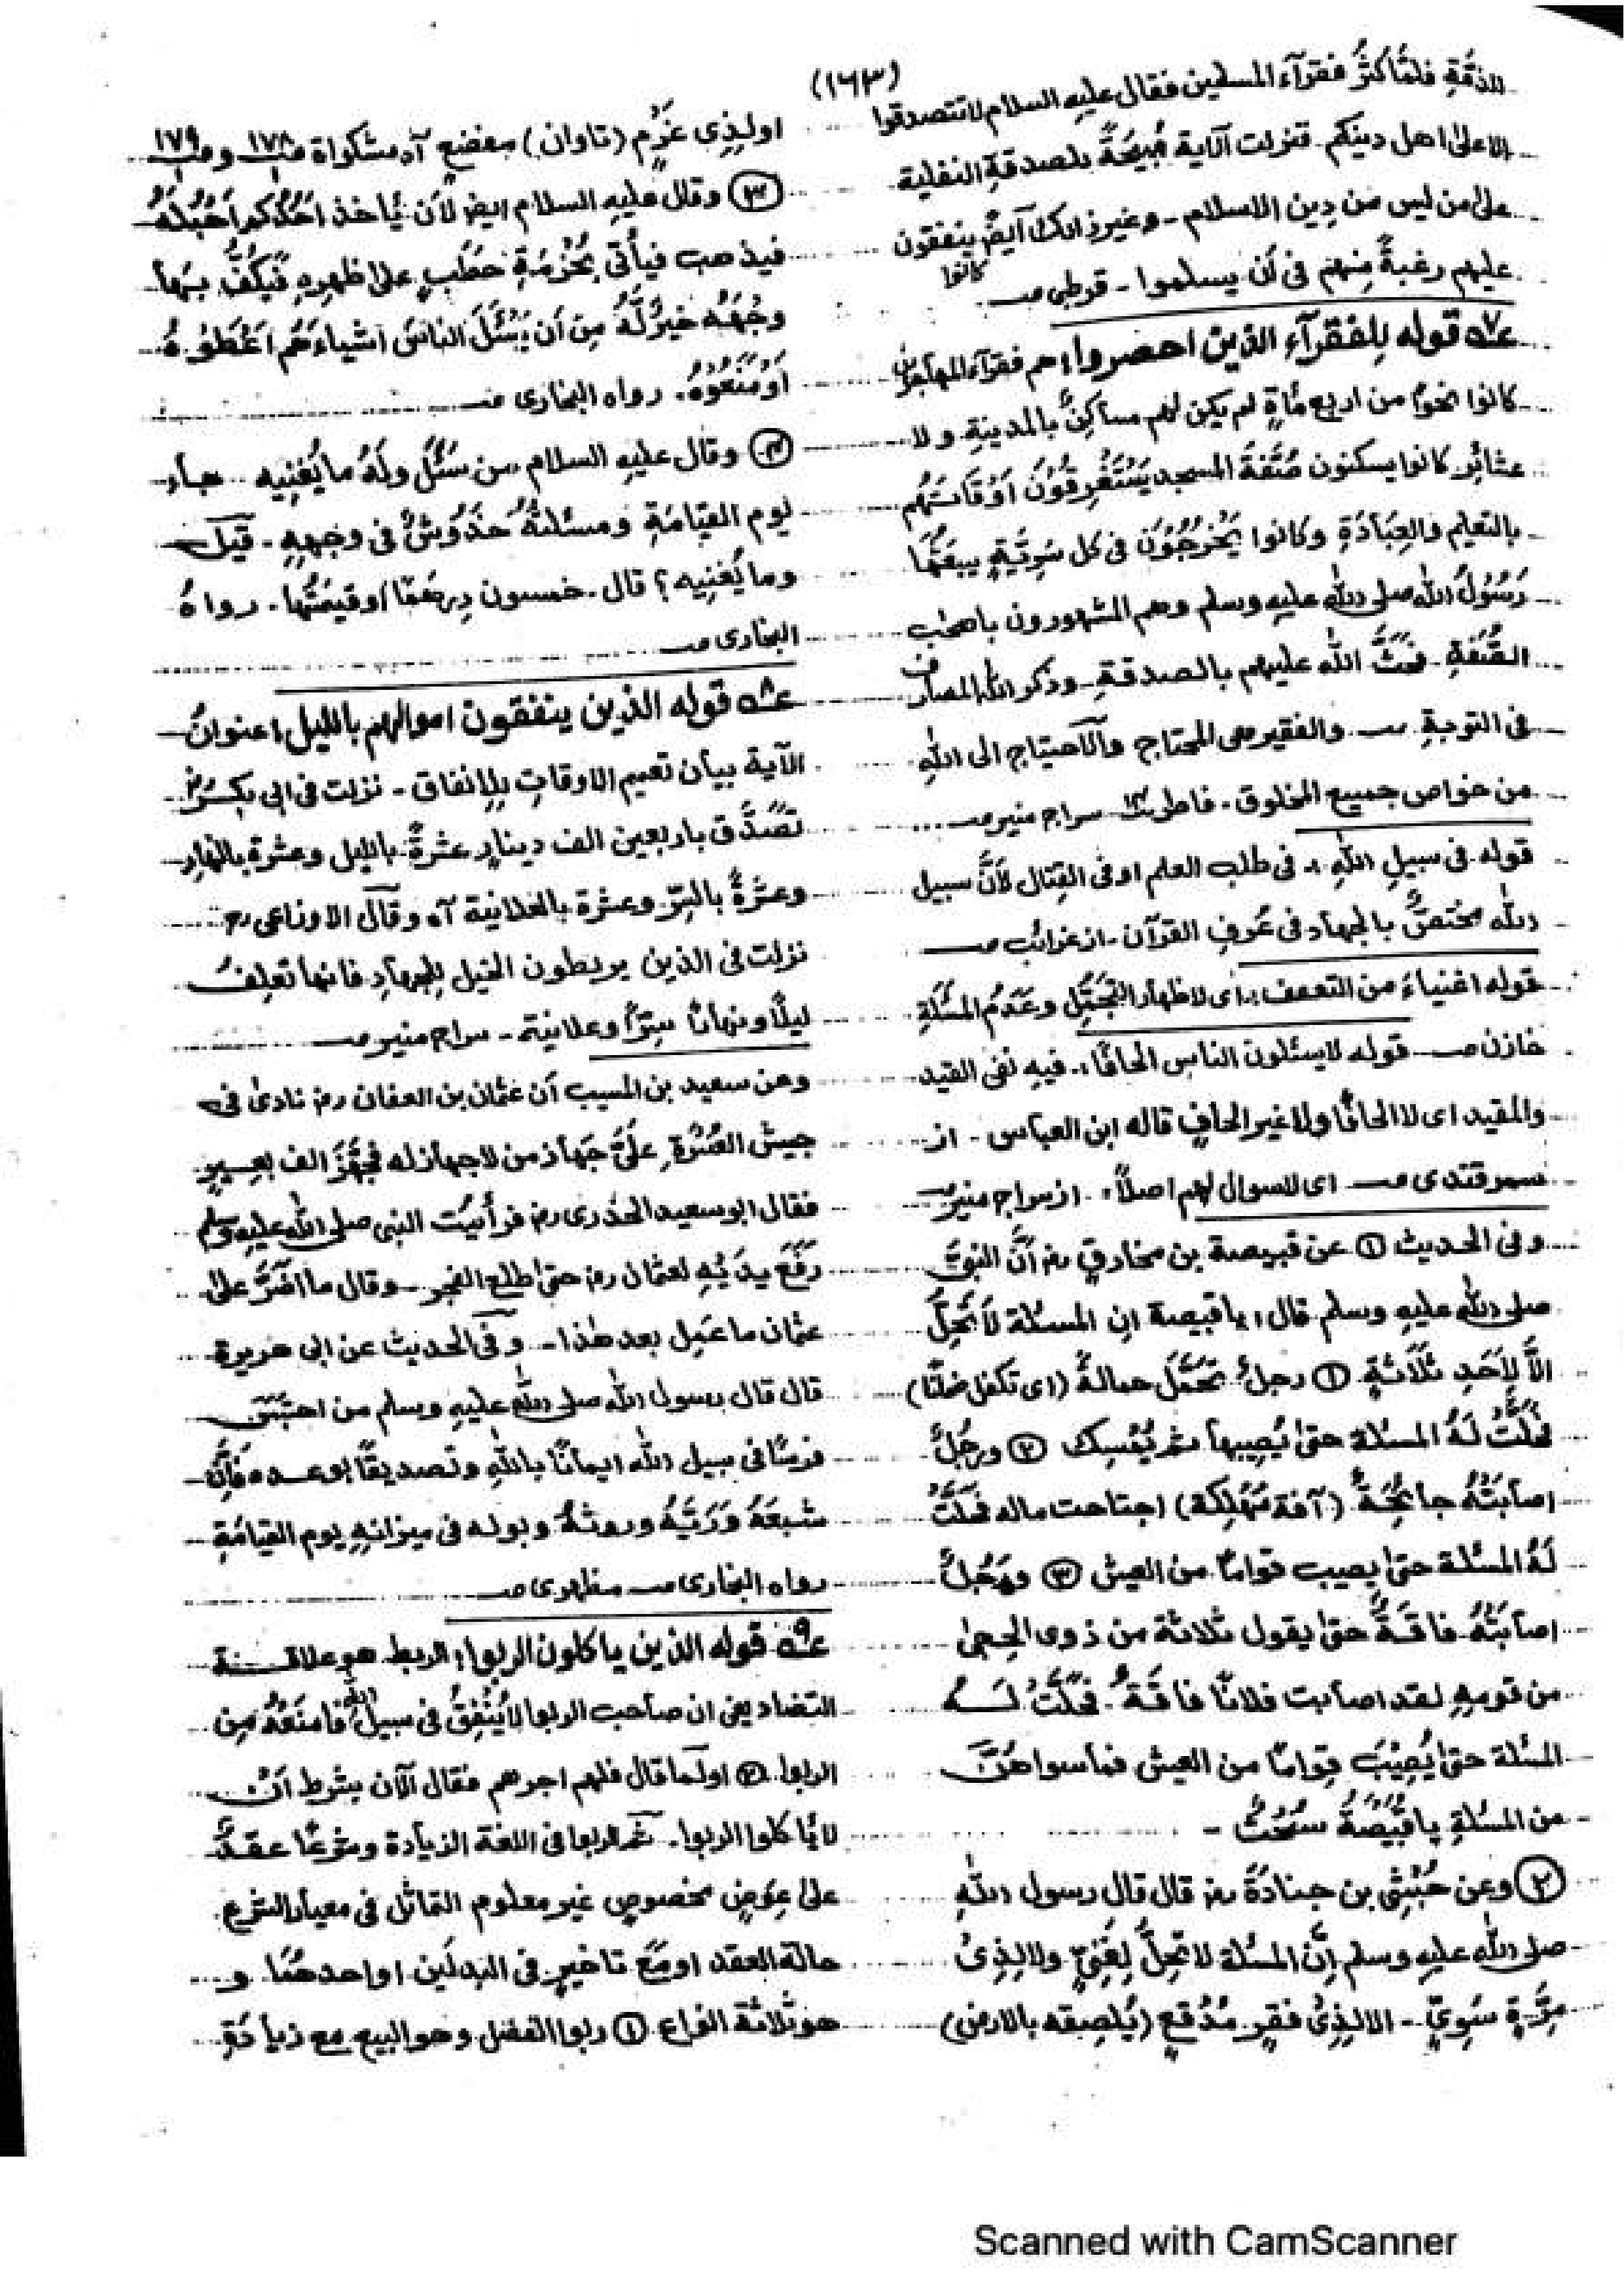 (١٦٣)
للذمّةِ فلمّا كثُر فقرآء المسلمين فقال عليهِ السلام لا تتصدقوا
الا على اهل دينكم۔ فنزلت الآية مُبِيحَةً للصدقةِ النفلية
على من ليس من دِين الاسلام۔ وغير ذالك آيضٌ ينفقون
عليهم رغبةً مِنهم فى أن يسلموا۔ قرطبى صـ
كانوا
عـ٧ـه قوله لِلفقرآءِ الذين احصروا؛ هم فقرآء المهاجرين
كانوا نحوًا من اربع مأةٍ لم يكن لهم مساكِنٌ بالمدينةِ ولا
عشائِر كانوا يسكنون صُفّةَ المسجد يَسْتَغْرِقُوْنَ اَوْقَاتَهُم
بالتعليم والعِبَادَةِ وكانوا يَخْرُجُوْنَ فى كل سَرِيَّةٍ يبعَثُهَا
رَسُوْلُ الله صلى الله عليهِ وسلم وهم المشهورون باصحٰب
الصُّفَةِ۔ فحَثَّ الله عليهم بالصدقةِ۔ وذكر الله المصارف
فى التوبةِ صـ والفقير هى المحتاج والآحتياج الى اللهِ
من خواص جميع المخلوق۔ فاطر سراج منير صـ
قوله فى سبيلِ اللهِ ؛ فى طلب العلم او فى القِتال لأنَّ سبيل
الله مختصٌّ بالجهاد فى عُرفِ القرآن۔ از غرائب صـ
قوله اغنياءَ من التعفف؛ اى لاظهار التَجَمُّلِ وعَدَمُ المسئَلَةِ
خازن صـ قوله لا يسئلون الناس الحافًا؛ فيهِ نفى القيد
والمقيد اى لا الحافًا ولا غير الحافٍ قاله ابن العباس۔ از
سمرقندى صـ اى لا سوال لهم اصلاً؛ از سراج منير صـ
وفى الحديث ① عن قبيصة بن مخارقٍ رض أنَّ النبىَّ
صلى الله عليهِ وسلم قال؛ يا قبيصة ان المسئلة لَا تَحِلُّ
الَّا لِاَحَدِ ثَلَاثَةٍ ① رجلٌ تَحَمَّلَ حمالةً (اى تكفل ضمانًا)
فحَلَّتْ لَهُ المسئلة حتىٰ يُصِيبها ثم يُمْسِك ② ورجُلٌ
اصابَتْهُ جائِحَةٌ (آفة مَهْلِكة) اجتاحت ماله فحَلَّتْ
لَهُ المسئلة حتىٰ يصيب قوامًا من العيش ③ ورَجُلٌ
اصابَتْهُ فاقَةٌ حتىٰ يقول ثلاثة من ذوى الحِجىٰ
من قومهِ لقد اصابت فلانًا فاقَةٌ۔ فحَلَّتْ لَهُ
المسئلة حتىٰ يُصِيْبَ قِوامًا من العيش فما سواهُنَّ
من المسئلةِ يا قَبِيْصَةُ سُحْتٌ ۔
② وعن حُبْشِى بن جنادَةَ رض قال قال رسول اللهِ
صلى الله عليهِ وسلم إنَّ المسئلة لا تحِلُّ لِغَنِىٍّ ولا لِذِىْ
مِرَّةٍ سَوِىٍّ۔ الا لِذِىْ فقرٍ مُدْقعٍ (يُلصِقه بالارض)
او لِذِى غرْمٍ (تاوان) مفضعٍ آه مشكواة صـ١٧٨ وصـ١٧٩
③ وقال عليهِ السلام ايض لأن يأخذ اَحَدُكم اَحْبُلَهُ
فيذهب فيأتى بحُزْمَةِ حطَبٍ على ظهرِهِ فيَكُفُّ بها
وجْهَهُ خيرٌ لَهُ مِن أن يَسْئَلَ الناسَ اشياءَهُم اَعْطَوْهُ
اَوْ مَنَعُوْهُ۔ رواه البخارى صـ
④ وقال عليهِ السلام من سَئَلَ ولَهُ ما يُغنِيه جاء
يوم القيَامَةِ ومسئلتُهُ خدُوْشٌ فى وجههِ۔ قِيْل
وما يُغنِيه؟ قال۔ خمسون دِرهمًا او قيمَتُها۔ رواهُ
البخارى صـ
عـ٨ـه قوله الذين ينفقون اموالهم بالليل؛ عنوانُ
الآية بيأن تعميم الاوقاتِ لِلإنفاق۔ نزلت فى ابى بكرٍ رض
تَصَدَّق باربعين الف دينارٍ عشرةٌ بالليل وعشرة بالنهارِ
وعشرةٌ بالسِرّ وعشرة بالعلانية آه وقال الاوزاعى رح
نزلت فى الذين يربطون الخيل لِلجهادِ فانها تعلِفُ
ليلًا ونهارًا سِرًّا وعلانية۔ سراج منير صـ
وعن سعيد بن المسيب أن عثمان بن العفان رض نادىٰ فى
جيش العُسْرَةِ علَىَّ جَهاز من لاجهاز له فجَهَّزَ الف بعِيرٍ
فقال ابو سعيد الخدرى رض فرأيتُ النبى صلى الله عليهِ وسلم
رَفَعَ يدَيْهِ لعثمان رض حتىٰ اطلع الفجر۔ وقال ما اضَرَّ علىٰ
عثمان ما عَمِل بعد هٰذا۔ وفى الحديث عن ابى هريرة
قال قال رسول الله صلى الله عليهِ وسلم من احتَبَسَ
فرسًا فى سبيل الله ايمانًا باللهِ وتصديقًا بوعده فَإنَّ
شبعَهُ وَرَيَّهُ وروثهُ وبوله فى ميزانهِ يوم القيامَةِ
رواه البخارى صـ مظهرى صـ
عـ٩ـه قوله الذين ياكلون الربوا؛ الربط هو علاقة
التضاد يعنى ان صاحب الربوا لا يُنْفِقُ فى سبيل الله فامنَعُهُ مِن
الربوا۔ ② اولما قال فلهم اجرهم فقال الآن بشرط اَنْ
لا يأكلوا الربوا۔ ثم الربوا فى اللغة الزيادة وشرعًا عقدٌ
على عِوضٍ مخصوصٍ غير معلوم التماثل فى معيار الشرع
حالة العقد او مَعَ تاخيرٍ فى البدلَين او احدهمَا و
هو ثلاثة انواع ① ربوا الفضل وهو البيع مع زيأدَةِ
Scanned with CamScanner